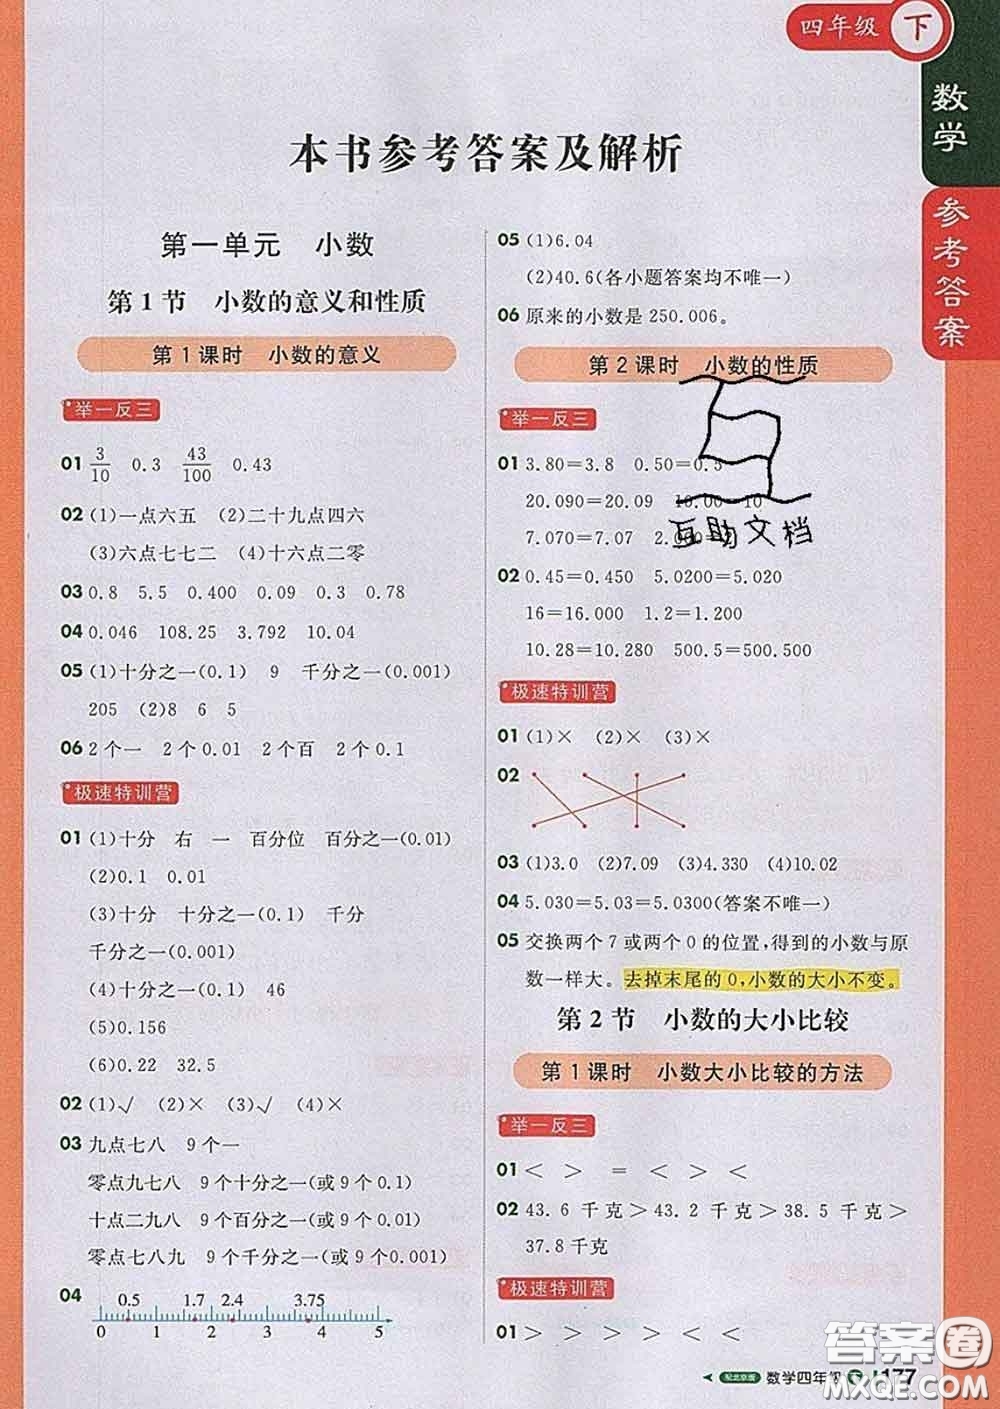 四年级 下
数学
参考答案
本书参考答案及解析
第一单元 小数
第1节 小数的意义和性质
第1课时 小数的意义
举一反三
01 3/10 0.3 43/100 0.43
02 (1)一点六五 (2)二十九点四六
(3)六点七七二 (4)十六点二零
03 0.8 5.5 0.400 0.09 0.3 0.78
04 0.046 108.25 3.792 10.04
05 (1)十分之一(0.1) 9 千分之一(0.001)
205 (2)8 6 5
06 2个一 2个0.01 2个百 2个0.1
极速特训营
01 (1)十分 右 一 百分位 百分之一(0.01)
(2)0.1 0.01
(3)十分 十分之一(0.1) 千分
千分之一(0.001)
(4)十分之一(0.1) 46
(5)0.156
(6)0.22 32.5
02 (1)√ (2)× (3)√ (4)×
03 九点七八 9个一
零点九七八 9个十分之一(或9个0.1)
十点二九八 9个百分之一(或9个0.01)
零点七八九 9个千分之一(或9个0.001)
04 0.5 1.7 2.4 3.75
0 1 2 3 4 5
05 (1)6.04
(2)40.6(各小题答案均不唯一)
06 原来的小数是250.006。
第2课时 小数的性质
举一反三
01 3.80=3.8 0.50=0.5
20.090=20.09 10.00=10
7.070=7.07
互助文档
02 0.45=0.450 5.0200=5.020
16=16.000 1.2=1.200
10.28=10.280 500.5=500.500
极速特训营
01 (1)× (2)× (3)×
02
03 (1)3.0 (2)7.09 (3)4.330 (4)10.02
04 5.030=5.03=5.0300(答案不唯一)
05 交换两个7或两个0的位置,得到的小数与原
数一样大。去掉末尾的0,小数的大小不变。
第2节 小数的大小比较
第1课时 小数大小比较的方法
举一反三
01 < > = < > <
02 43.6千克>43.2千克>38.5千克>
37.8千克
极速特训营
01 > > > > < <
配北京版 数学四年级 177
答案圈
MXQE.COM